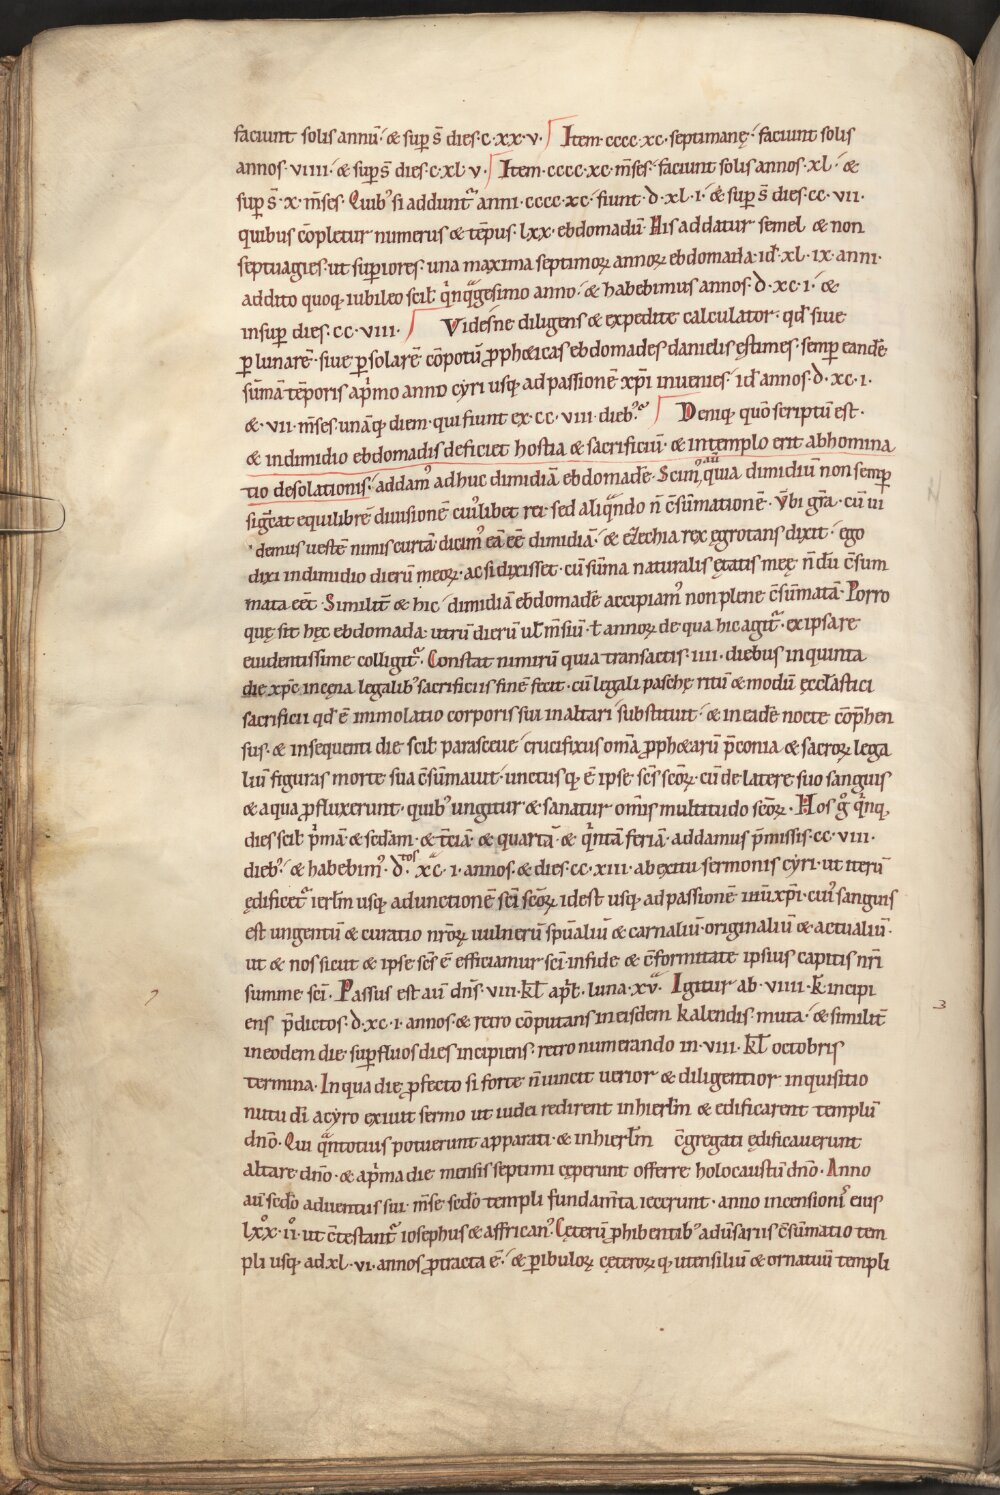 faciunt solis annū· & suꝑ s̄ dies·c·xx·v· Item·cccc·xc·septimanę· faciunt solis
annos·viiii·& suꝑ s̄ dies·c·xl·v· Item·cccc·xc·m̄ses· faciunt solis annos·xl· &
suꝑ s̄·x·m̄ses· Quib; si addunt᷑ anni·cccc·xc· fiunt·d·xl·i· & suꝑ s̄ dies·cc·vii·
quibus cōpletur numerus & tēpus·lxx·ebdomadū· His addatur semel & non
septuagies· ut suꝑiores· una maxima septimoꝝ annoꝝ ebdomada· id·xl·ix·anni·
addito quoq; iubileo scil' q̇nq̇gesimo anno· & habebimus annos·d·xc·i· &
insuꝑ dies·cc·viii· Videsne diligens & expedite calculator· qd' siue
ꝑ lunarē· siue ꝑ solarē cōpotū ꝓph&icas ebdomades danielis ęstimes· semꝑ eandē
sūmā tēporis ap̓mo anno cyri usq; ad passionē xp̄i inuenies· id' annos·d·xc·i·
&·vii·m̄ses·unāq; diem· qui fiunt ex·cc·viii·dieb;· Deniq; quō scriptū est·
& indimidio ebdomadis deficiet hostia & sacrificiū· & intemplo erit abhomina
tio desolationis· addam; adhuc dimidiā ebdomadē· Scim; aūt quia dimidiū non semꝑ
sig̃cat equilibrē diuisionē cui;libet rei· sed aliq̃ndo n̄ c̄sūmationē· Vbi gr̄a· cū ui
demus uestē nimis curtā dicim; eā eē dimidiā· & ezechia rex ęgrotans dixit· ego
dixi indimidio dierū meoꝝ· ac si dixisset· cū sūma naturalis ętatis meę n̄dū c̄sum
mata eēt· Similit̄ & hic dimidiā ebdomadē accipiam; non plene c̄sūmatā· Porro
quę sit hęc ebdomada· utrū dierū ul' m̄siū· l' annoꝝ de qua hic agit᷑· ex ipsa re
euidentissime colligit᷑· Constat nimirū quia transactis·iiii·diebus inquinta
die xp̄c in cęna legalib; sacrificiis finē fecit· cū legali paschę ritū & modū ęccl'astici
sacrificii qd' ē immolatio corporis sui inaltari substituit· & in eadē nocte cōp̄hen
sus· & insequenti die scil' parasceue crucifixus om̄a ꝓph&arū p̄conia & sacroꝝ lega
liū figuras morte sua c̄sūmauit· unctusq; ē ipse scs̄ scōꝝ· cū de latere suo sanguis
& aqua ꝓfluxerunt· quib; ungitur & sanatur om̄is multitudo scōꝝ· Hos g̊ q̇nq;
dies scil' p̓mā· & sedam· & t̄ciā· & quartā· & q̇ntā feriā· addamus p̄missis·cc·viii·
dieb;· & habebim;·d·tos xc·i·annos· & dies·cc·xiii·ab exitu sermonis cyri· ut iterū
ędificet᷑ ierl'm usq; ad unctionē sc̄i scōꝝ idest usq; ad passionē ihū xp̄i· cui; sanguis
est ungentū & curatio nr̄oꝝ uulnerū sp̄ualiū & carnaliū· originaliū & actualiū·
ut & nos sicut & ipse scs̄ ē efficiamur sc̄i infide & c̄formitate ipsius capitis nr̄i
summe sc̄i· Passus est aū dn̄s·viii·kl' apl'·luna·xv· Igitur ab·viiii·k' incipi
ens p̄dictos·d·xc·i·annos· & retro cōputans in eisdem kalendis· muta· & similit̄
in eodem die suꝑfluos dies incipiens· retro numerando in·viii·kl' octobris
termina· In qua die ꝓfecto si forte n̄ uincit uerior & diligentior inquisitio
nutu dī a cyro exiuit sermo ut iudei redirent in hierl'm & edificarent templū
dnō· Qui q̃ntotius potuerunt apparati· & in hierl'm c̄gregati ędificauerunt
altare dnō· & ap̓ma die mensis septimi cęperunt offerre holocaustū dnō· Anno
aū sedō aduentus sui· m̄se sedō templi fundam̄ta iecerunt· anno incensioni; eius
lxx̊·ii̊· ut c̄testant᷑ iosephus & affrican;· Cęterū ꝓhibentib; adūsariis c̄sūmatio tem
pli usq; ad·xl·vi·annos ꝓtracta ē· & ꝑibuloꝝ cęteroꝝ q; utensiliū & ornatuū templi